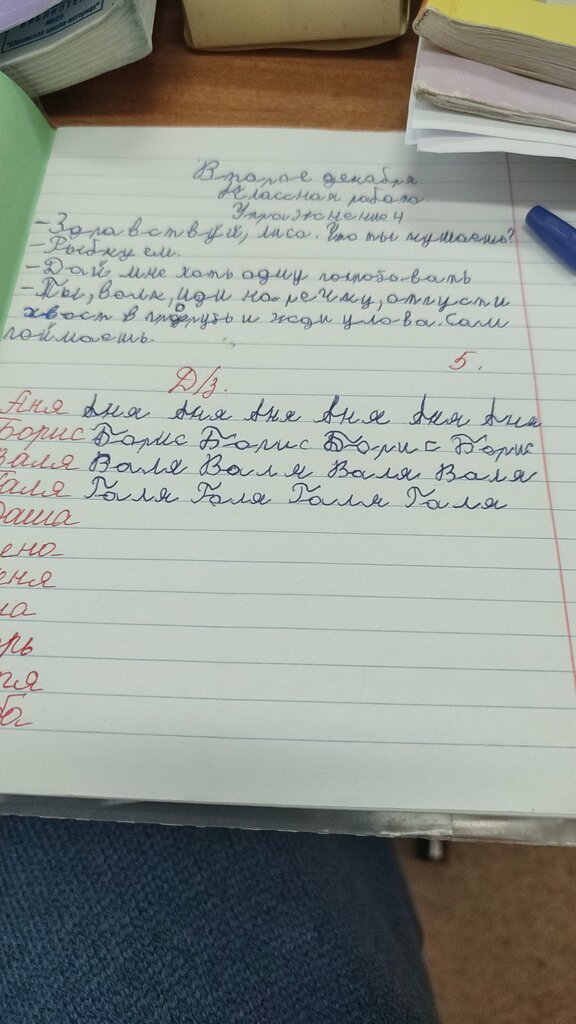 Второе декабря
Классная работа
Упражнение 4
- Здравствуй, лиса. Что ты кушаешь?
- Рыбку ем.
- Дай мне хоть одну попробовать
- Ты, волк, иди на речку, отпусти
хвост в прорубь и жди улова. Сам
поймаешь.
5.
Д/з.
Аня Аня Аня Аня Аня Аня Аня
Борис Борис Борис Борис Борис
Валя Валя Валя Валя Валя
Галя Галя Галя Галя Галя
Даша
ена
еня
на
рь
тя
ба